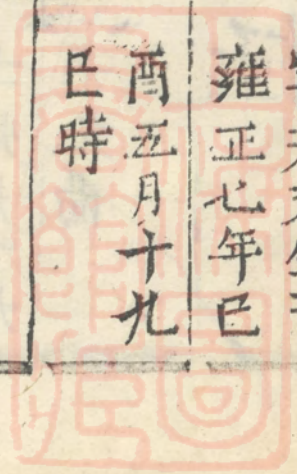 雍正七年己
酉五月十九
巳時